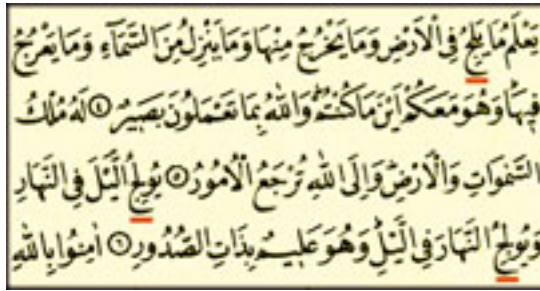 يَعْلَمُ مَا يَلِجُ فِى الْاَرْضِ وَمَا يَخْرُجُ مِنْهَا وَمَا يَنْزِلُ مِنَ السَّمَٓاءِ وَمَا يَعْرُجُ
فِيهَاۜ وَهُوَ مَعَكُمْ اَيْنَ مَا كُنْتُمْۜ وَاللّٰهُ بِمَا تَعْمَلُونَ بَصِيرٌ ﴿٤﴾ لَهُ مُلْكُ
السَّمٰوَاتِ وَالْاَرْضِۜ وَاِلَى اللّٰهِ تُرْجَعُ الْاُمُورُ ﴿٥﴾ يُولِجُ الَّيْلَ فِى النَّهَارِ
وَيُولِجُ النَّهَارَ فِى الَّيْلِۜ وَهُوَ عَلِيمٌ بِذَاتِ الصُّدُورِ ﴿٦﴾ اٰمِنُوا بِاللّٰهِ